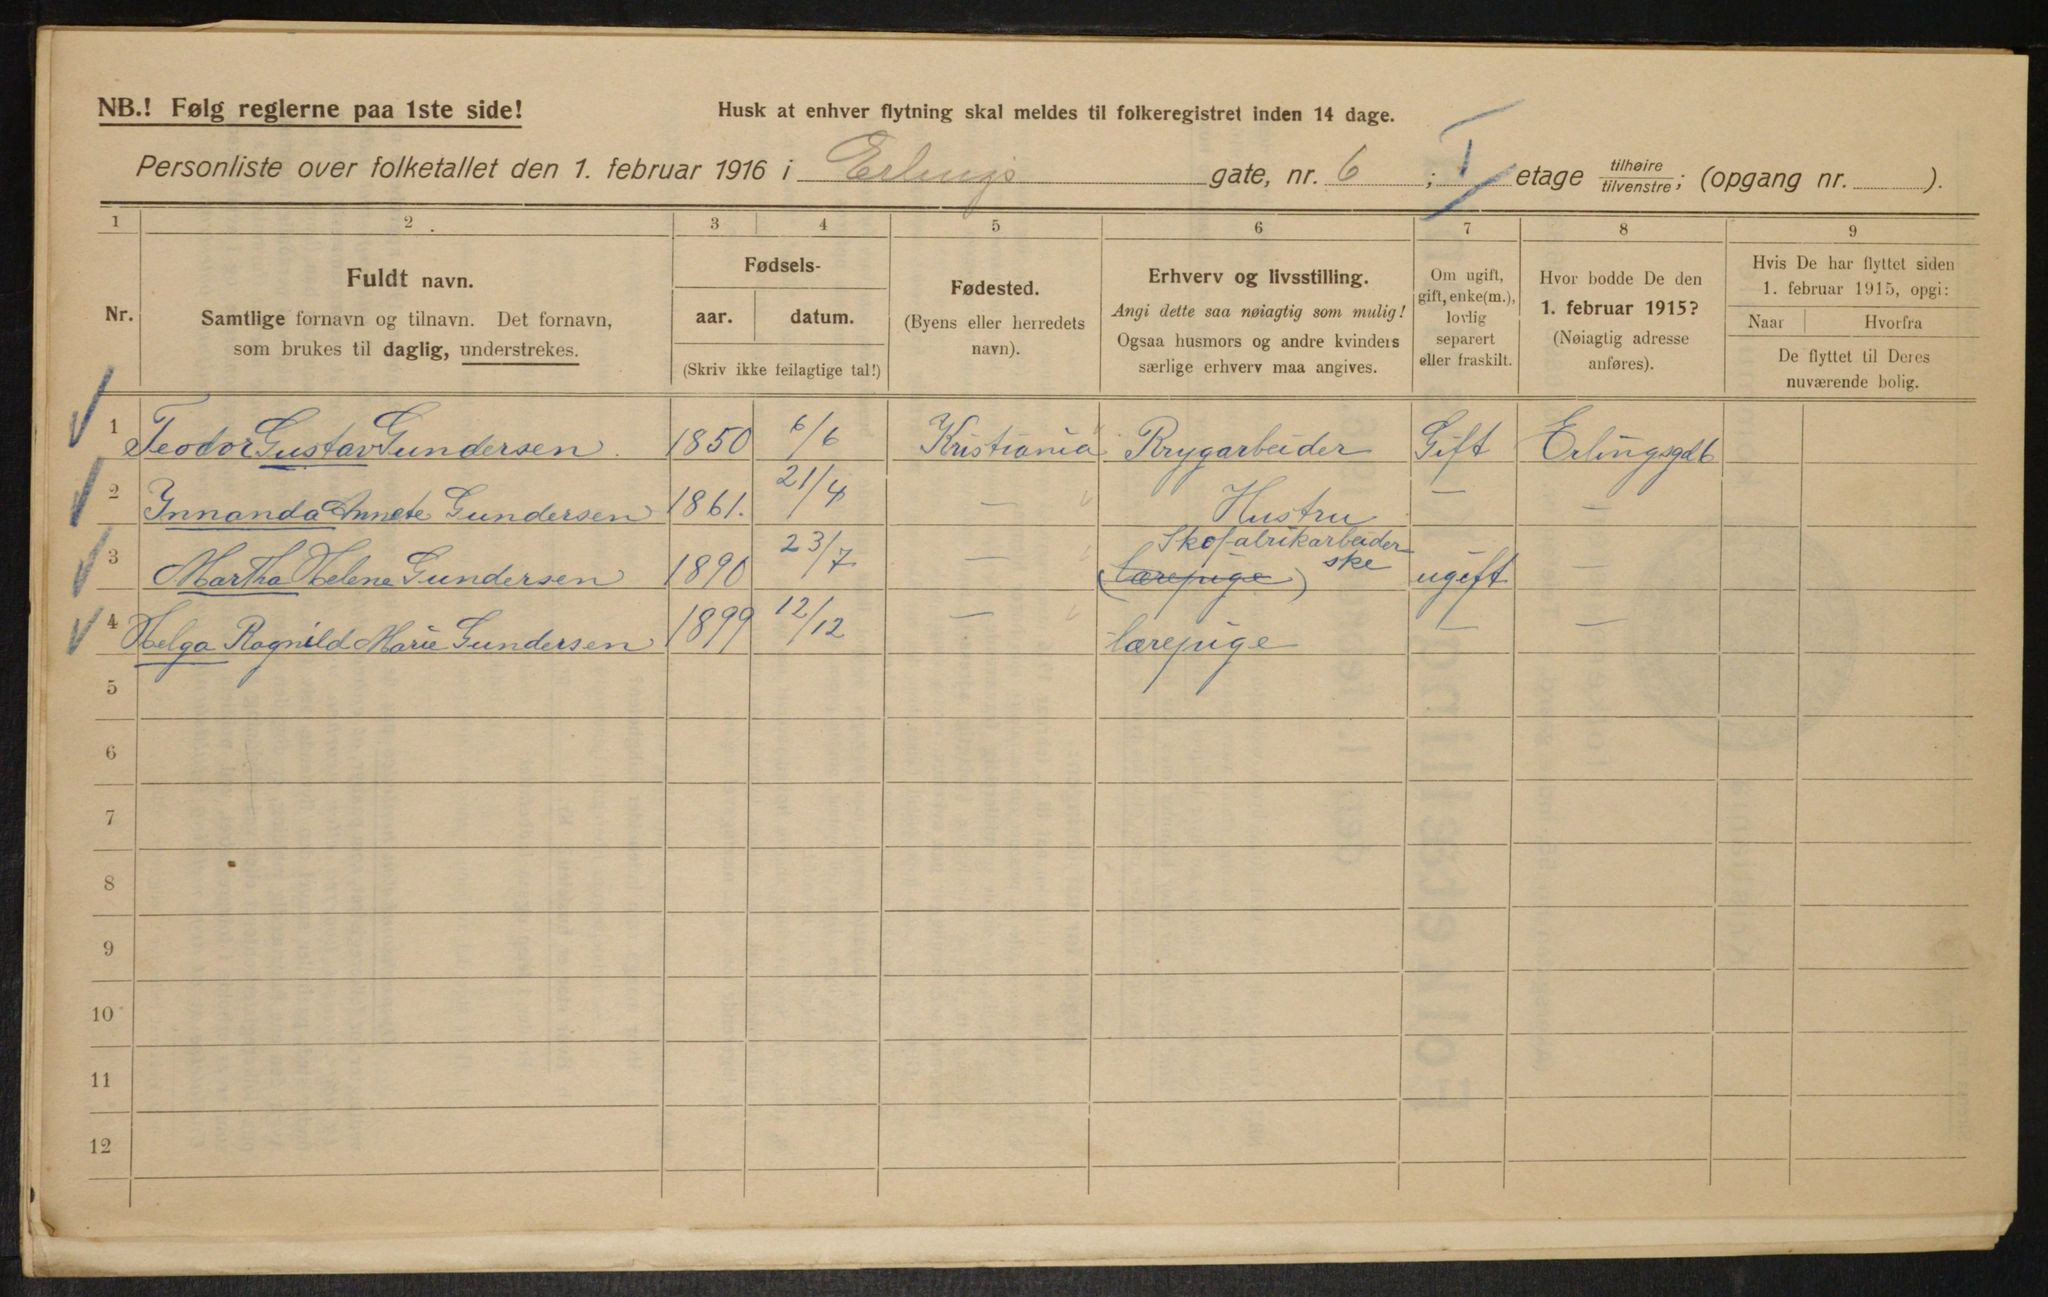 NB.! Følg reglerne paa 1ste side!
Husk at enhver flytning skal meldes til folkeregistret inden 14 dage.
Personliste over folketallet den 1. februar 1916 i Erlings gate, nr. 6 ; I etage tilhøire tilvenstre ; (opgang nr. ).
1 2 3 4 5 6 7 8 9
Nr.
Fuldt navn.
Samtlige fornavn og tilnavn. Det fornavn,
som brukes til daglig, understrekes.
Fødsels-
aar. datum.
(Skriv ikke feilagtige tal!)
Fødested.
(Byens eller herredets
navn).
Erhverv og livsstilling.
Angi dette saa nøiagtig som mulig!
Ogsaa husmors og andre kvinders
særlige erhverv maa angives.
Om ugift,
gift, enke(m.),
lovlig
separert
eller fraskilt.
Hvor bodde De den
1. februar 1915?
(Nøiagtig adresse
anføres).
Hvis De har flyttet siden
1. februar 1915, opgi:
Naar Hvorfra
De flyttet til Deres
nuværende bolig.
1 Teodor Gustav Gundersen. 1850 6/6 Kristiania Brygarbeider Gift Erlingsgd 6
2 Innanda Annete Gundersen 1861. 21/4 — Hustru — —
3 Martha Helene Gundersen 1890 23/7 — Skofabrikarbeider
ske (lærepige) ugift —
4 Helga Ragnild Marie Gundersen 1899 12/12 — lærepige — —
5
6
7
8
9
10
11
12